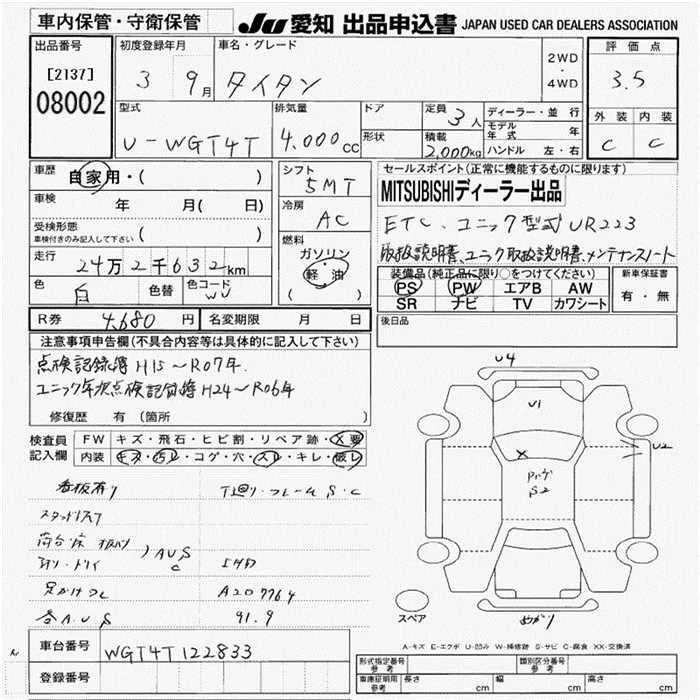 車内保管・守衛保管
JU 愛知 出品申込書 JAPAN USED CAR DEALERS ASSOCIATION
出品番号
[2137]
08002
初度登録年月
3 9月
車名・グレード
タイタン
2WD
・
4WD
評価点
3.5
外装 内装
C C
型式
U-WGT4T
排気量
4.000cc
ドア
形状
定員
3人
積載
2,000kg
ディーラー・並行
モデル年式 年
ハンドル 左・右
車歴
自家用・( )
車検
年 月( 日)
受検形態
車検付きのみ記入して下さい ( )
走行
24万2千632km
色
白
色替
色コード
WJ
シフト
5MT
冷房
AC
燃料
ガソリン
軽油
( )
セールスポイント(正常に機能するものに限ります)
MITSUBISHIディーラー出品
ETC、ユニック型式UR223
取扱説明書、ユニック取扱説明書、メンテナンスノート
装備品(純正品に限り○をつけてください)
PS PW エアB AW
SR ナビ TV カワシート
新車保証書
有・無
後日品
R券 4,680 円
名変期限 月 日
注意事項申告欄(不具合内容等は具体的に記入して下さい)
点検記録簿H15~R07年
ユニック年次点検記録簿H24~R06年
修復歴 有(箇所 )
検査員記入欄
FW キズ・飛石・ヒビ割・リペア跡・X要
内装 キズ・汚レ・コゲ・穴・スレ・キレ・破レ
看板有り 下廻り・フレームS・C
スタッドレス
荷台床
AUS
C
足かけ
各A.U.S
A207764
91.9
U4
U1
X
S2
U2
スペア
A-キズ E-エクボ U-凹み W-補修跡 S-サビ C-腐食 XX-交換済
車台番号
WGT4T122833
登録番号
形式指定番号
参考
類別区分番号
参考
車庫証明用
参考
長さ cm 幅 cm 高さ cm